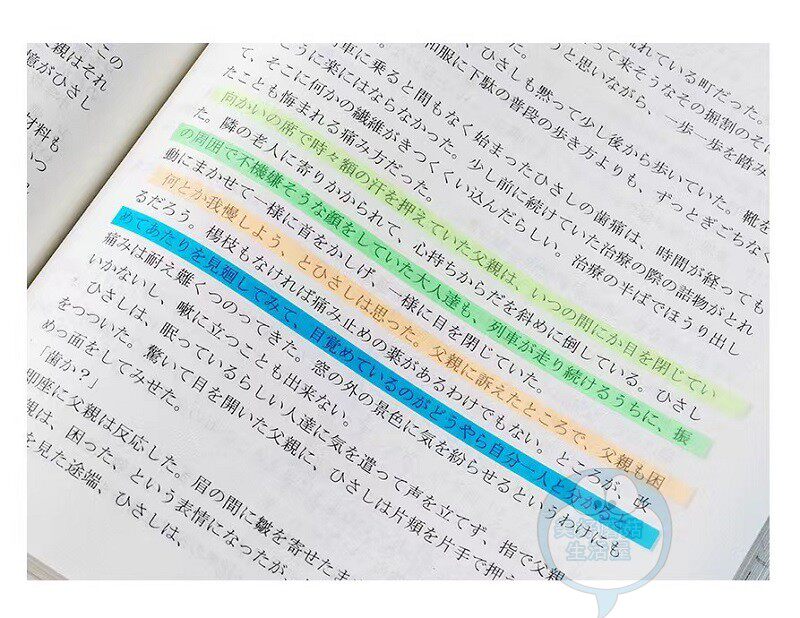 この
親はそれ
憶がひさし
材料も
いつ
れている町だった。
って来そうなその掘割のそに
うと思いながら、一歩一歩を踏み
、ひさしも黙って少し後から歩いていた。靴を
和服に下駄の普段の歩き方よりも、ずっとぎごちなく
車に乗ると間もなく始まったひさしの歯痛は、時間が経っても
うに楽にはならなかった。少し前に続けていた治療の際の詰物がとれ
て、そこに何かの繊維がきつくくい込んだらしい。治療の半ばでほうり出し
たことも悔まれる痛み方だった。
向かいの席で時々額の汗を押えていた父親は、いつの間にか目を閉じてい
た。隣の老人に寄りかかられて、心持ちからだを斜めに倒している。ひさし
の周囲で不機嫌そうな顔をしていた大人達も、列車が走り続けるうちに、振
動にまかせて一様に首をかしげ、一様に目を閉じていた。
何とか我慢しよう、とひさしは思った。父親に訴えたところで、父親も困
るだろう。楊枝もなければ痛み止めの薬があるわけでもない。ところが、改
めてあたりを見廻してみて、目覚めているのがどうやら自分一人と分かると
痛みは耐え難くつのってきた。窓の外の景色に気を紛らせるというわけにも
いかないし、嗽に立つことも出来ない。
ひさしは、眠っているらしい人達に気を遣って声を立てず、指で父親
をつついた。驚いて目を開いた父親に、ひさしは片頬を片手で押え
めっ面をしてみせた。
「歯か?」
即座に父親は反応した。眉の間に皺を寄せたま
親は、困った、という表情になったが、
を見た途端、ひさしは、
生活屋